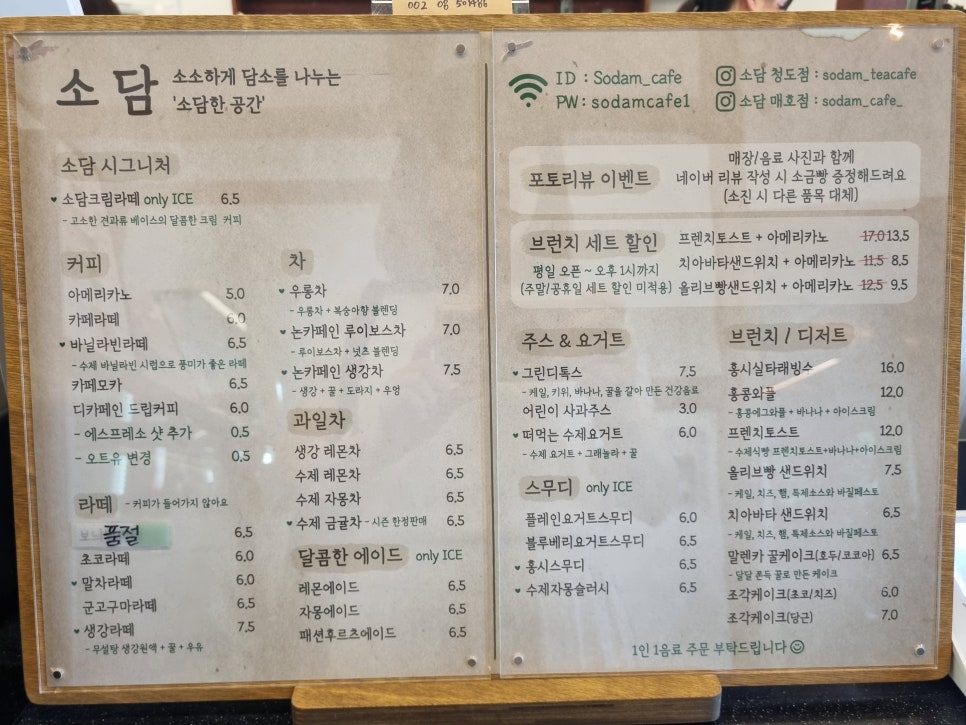 002 08 501486
소담
소소하게 담소를 나누는
'소담한 공간'
소담 시그니처
♥ 소담크림라떼 only ICE 6.5
- 고소한 견과류 베이스의 달콤한 크림 커피
커피
아메리카노 5.0
카페라떼 6.0
♥ 바닐라빈라떼 6.5
- 수제 바닐라빈 시럽으로 풍미가 좋은 라떼
카페모카 6.5
디카페인 드립커피 6.0
- 에스프레소 샷 추가 0.5
- 오트유 변경 0.5
라떼 - 커피가 들어가지 않아요
품절 6.5
초코라떼 6.0
♥ 말차라떼 6.0
군고구마라떼 6.5
♥ 생강라떼 7.5
- 무설탕 생강원액 + 꿀 + 우유
차
♥ 우롱차 7.0
- 우롱차 + 복숭아향 블렌딩
♥ 논카페인 루이보스차 7.0
- 루이보스차 + 넛츠 블렌딩
♥ 논카페인 생강차 7.5
- 생강 + 꿀 + 도라지 + 우엉
과일차
생강 레몬차 6.5
수제 레몬차 6.5
수제 자몽차 6.5
♥ 수제 금귤차 - 시즌 한정판매 6.5
달콤한 에이드 only ICE
레몬에이드 6.5
자몽에이드 6.5
패션후르츠에이드 6.5
ID : Sodam_cafe
PW : sodamcafe1
소담 청도점 : sodam_teacafe
소담 매호점 : sodam_cafe_
포토리뷰 이벤트
매장/음료 사진과 함께
네이버 리뷰 작성 시 소금빵 증정해드려요
(소진 시 다른 품목 대체)
브런치 세트 할인
평일 오픈 ~ 오후 1시까지
(주말/공휴일 세트 할인 미적용)
프렌치토스트 + 아메리카노 17.0 13.5
치아바타샌드위치 + 아메리카노 11.5 8.5
올리브빵샌드위치 + 아메리카노 12.5 9.5
주스 & 요거트
♥ 그린디톡스 7.5
- 케일, 키위, 바나나, 꿀을 갈아 만든 건강음료
어린이 사과주스 3.0
♥ 떠먹는 수제요거트 6.0
- 수제 요거트 + 그래놀라 + 꿀
스무디 only ICE
플레인요거트스무디 6.0
블루베리요거트스무디 6.5
♥ 홍시스무디 6.5
♥ 수제자몽슬러시 6.5
브런치 / 디저트
홍시실타래빙수 16.0
홍콩와플 12.0
- 홍콩에그와플 + 바나나 + 아이스크림
프렌치토스트 12.0
- 수제식빵 프렌치토스트+바나나+아이스크림
올리브빵 샌드위치 7.5
- 케일, 치즈, 햄, 특제소스와 바질페스토
치아바타 샌드위치 6.5
- 케일, 치즈, 햄, 특제소스와 바질페스토
말렌카 꿀케이크(호두/코코아) 6.5
- 달달 쫀득 꿀로 만든 케이크
조각케이크(초코/치즈) 6.0
조각케이크(당근) 7.0
1인 1음료 주문 부탁드립니다